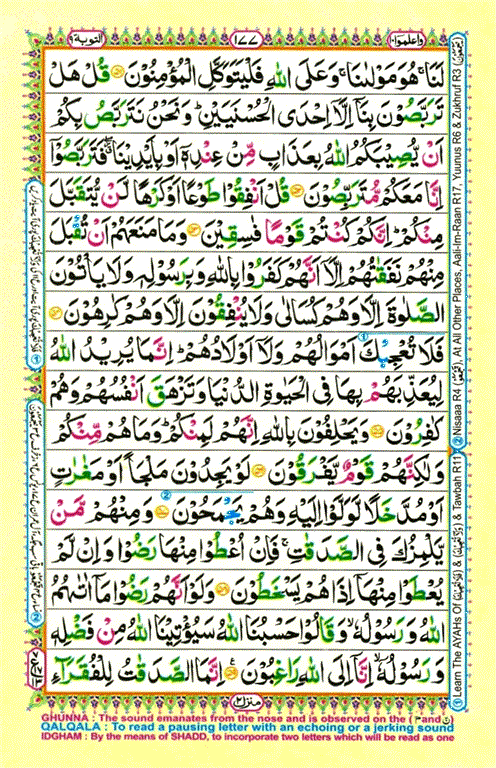 التوبة ٩
١٧٧
واعلموا ١٠
لَنَا ۚ هُوَ مَوْلٰىنَا ۚ وَعَلَى اللّٰهِ فَلْيَتَوَكَّلِ الْمُؤْمِنُوْنَ ۝ قُلْ هَلْ
تَرَبَّصُوْنَ بِنَاۤ اِلَّاۤ اِحْدَى الْحُسْنَيَيْنِ ؕ وَنَحْنُ نَتَرَبَّصُ بِكُمْ
اَنْ يُّصِيْبَكُمُ اللّٰهُ بِعَذَابٍ مِّنْ عِنْدِهٖۤ اَوْ بِاَيْدِيْنَا ۖ فَتَرَبَّصُوْۤا
اِنَّا مَعَكُمْ مُّتَرَبِّصُوْنَ ۝ قُلْ اَنْفِقُوْا طَوْعًا اَوْ كَرْهًا لَّنْ يُّتَقَبَّلَ
مِنْكُمْ ؕ اِنَّكُمْ كُنْتُمْ قَوْمًا فٰسِقِيْنَ ۝ وَمَا مَنَعَهُمْ اَنْ تُقْبَلَ
مِنْهُمْ نَفَقٰتُهُمْ اِلَّاۤ اَنَّهُمْ كَفَرُوْا بِاللّٰهِ وَبِرَسُوْلِهٖ وَلَا يَاْتُوْنَ
الصَّلٰوةَ اِلَّا وَهُمْ كُسَالٰى وَلَا يُنْفِقُوْنَ اِلَّا وَهُمْ كٰرِهُوْنَ ۝
فَلَا تُعْجِبْكَ اَمْوَالُهُمْ وَلَاۤ اَوْلَادُهُمْ ؕ اِنَّمَا يُرِيْدُ اللّٰهُ
لِيُعَذِّبَهُمْ بِهَا فِى الْحَيٰوةِ الدُّنْيَا وَتَزْهَقَ اَنْفُسُهُمْ وَهُمْ
كٰفِرُوْنَ ۝ وَيَحْلِفُوْنَ بِاللّٰهِ اِنَّهُمْ لَمِنْكُمْ ؕ وَمَا هُمْ مِّنْكُمْ
وَلٰكِنَّهُمْ قَوْمٌ يَّفْرَقُوْنَ ۝ لَوْ يَجِدُوْنَ مَلْجَاً اَوْ مَغٰرٰتٍ
اَوْ مُدَّخَلًا لَّوَلَّوْا اِلَيْهِ وَهُمْ يَجْمَحُوْنَ ۝ وَمِنْهُمْ مَّنْ
يَّلْمِزُكَ فِى الصَّدَقٰتِ ۚ فَاِنْ اُعْطُوْا مِنْهَا رَضُوْا وَاِنْ لَّمْ
يُعْطَوْا مِنْهَاۤ اِذَا هُمْ يَسْخَطُوْنَ ۝ وَلَوْ اَنَّهُمْ رَضُوْا مَاۤ اٰتٰىهُمُ
اللّٰهُ وَرَسُوْلُهٗ ۙ وَقَالُوْا حَسْبُنَا اللّٰهُ سَيُؤْتِيْنَا اللّٰهُ مِنْ فَضْلِهٖ
وَرَسُوْلُهٗۤ ۙ اِنَّاۤ اِلَى اللّٰهِ رٰغِبُوْنَ ۝ اِنَّمَا الصَّدَقٰتُ لِلْفُقَرَآءِ
منزل ٢
① Learn The AYAHs Of & Tawbah R11 ② Nisaaa R4 At All Other Places, Aali-Im-Raan R17, Yuunus R6 & Zukhruf R3
GHUNNA : The sound emanates from the nose and is observed on the (م and ن)
QALQALA : To read a pausing letter with an echoing or a jerking sound
IDGHAM : By the means of SHADD, to incorporate two letters which will be read as one